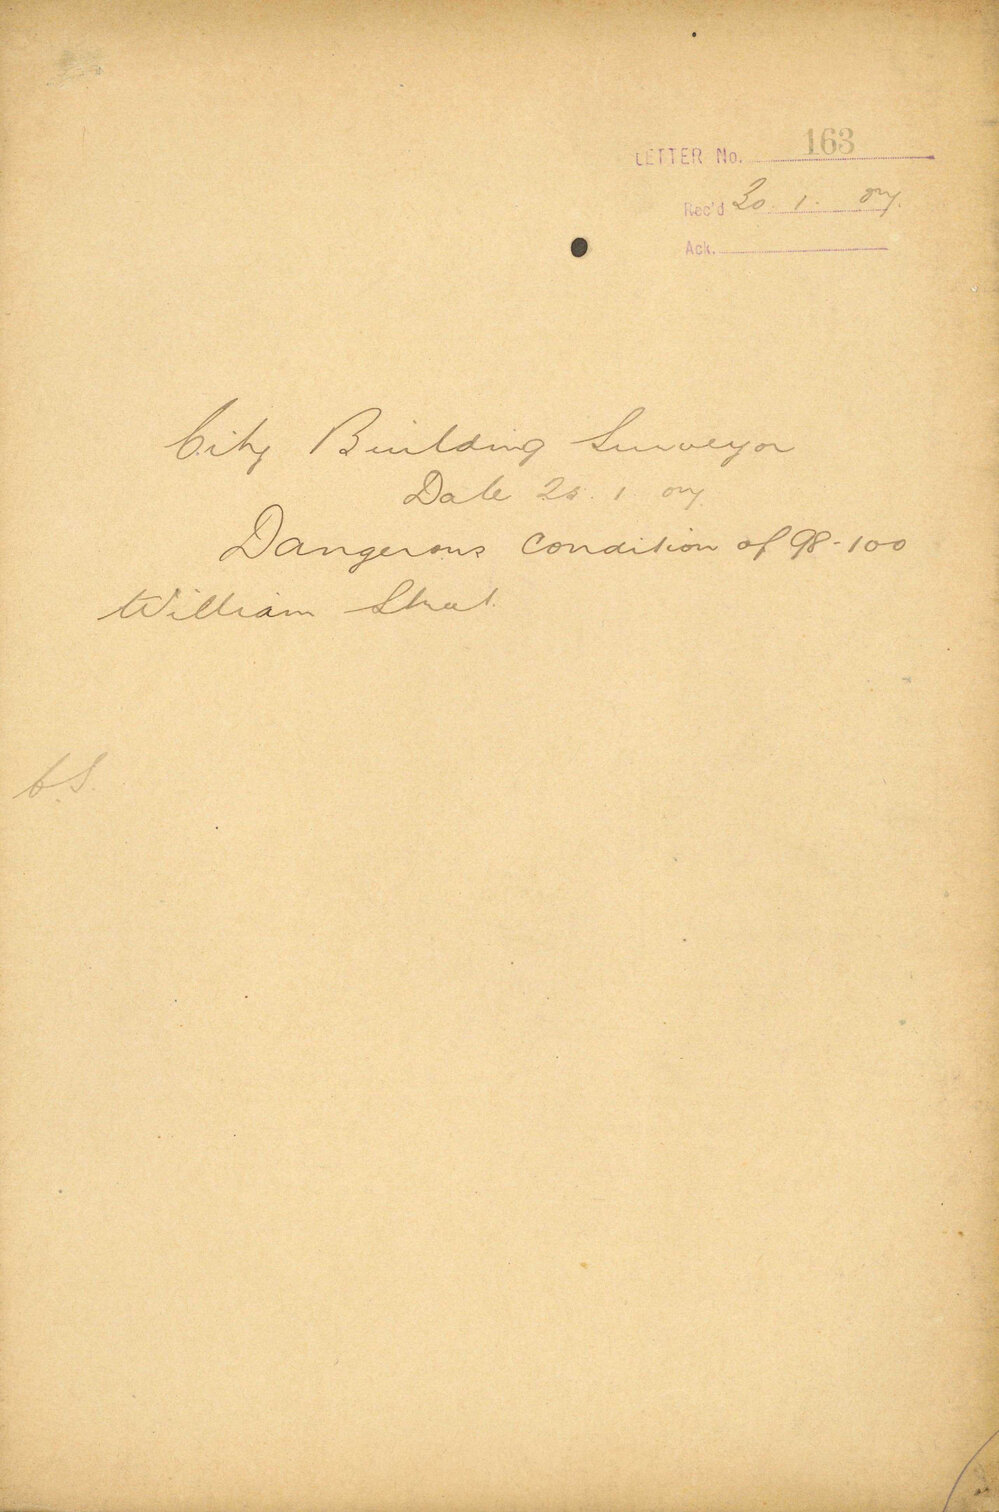 LETTER No. 163
Rec'd 30. 1. 07.
Ack.
City Building Surveyor
Date 1 07
Dangerous condition of 98-100
William Street